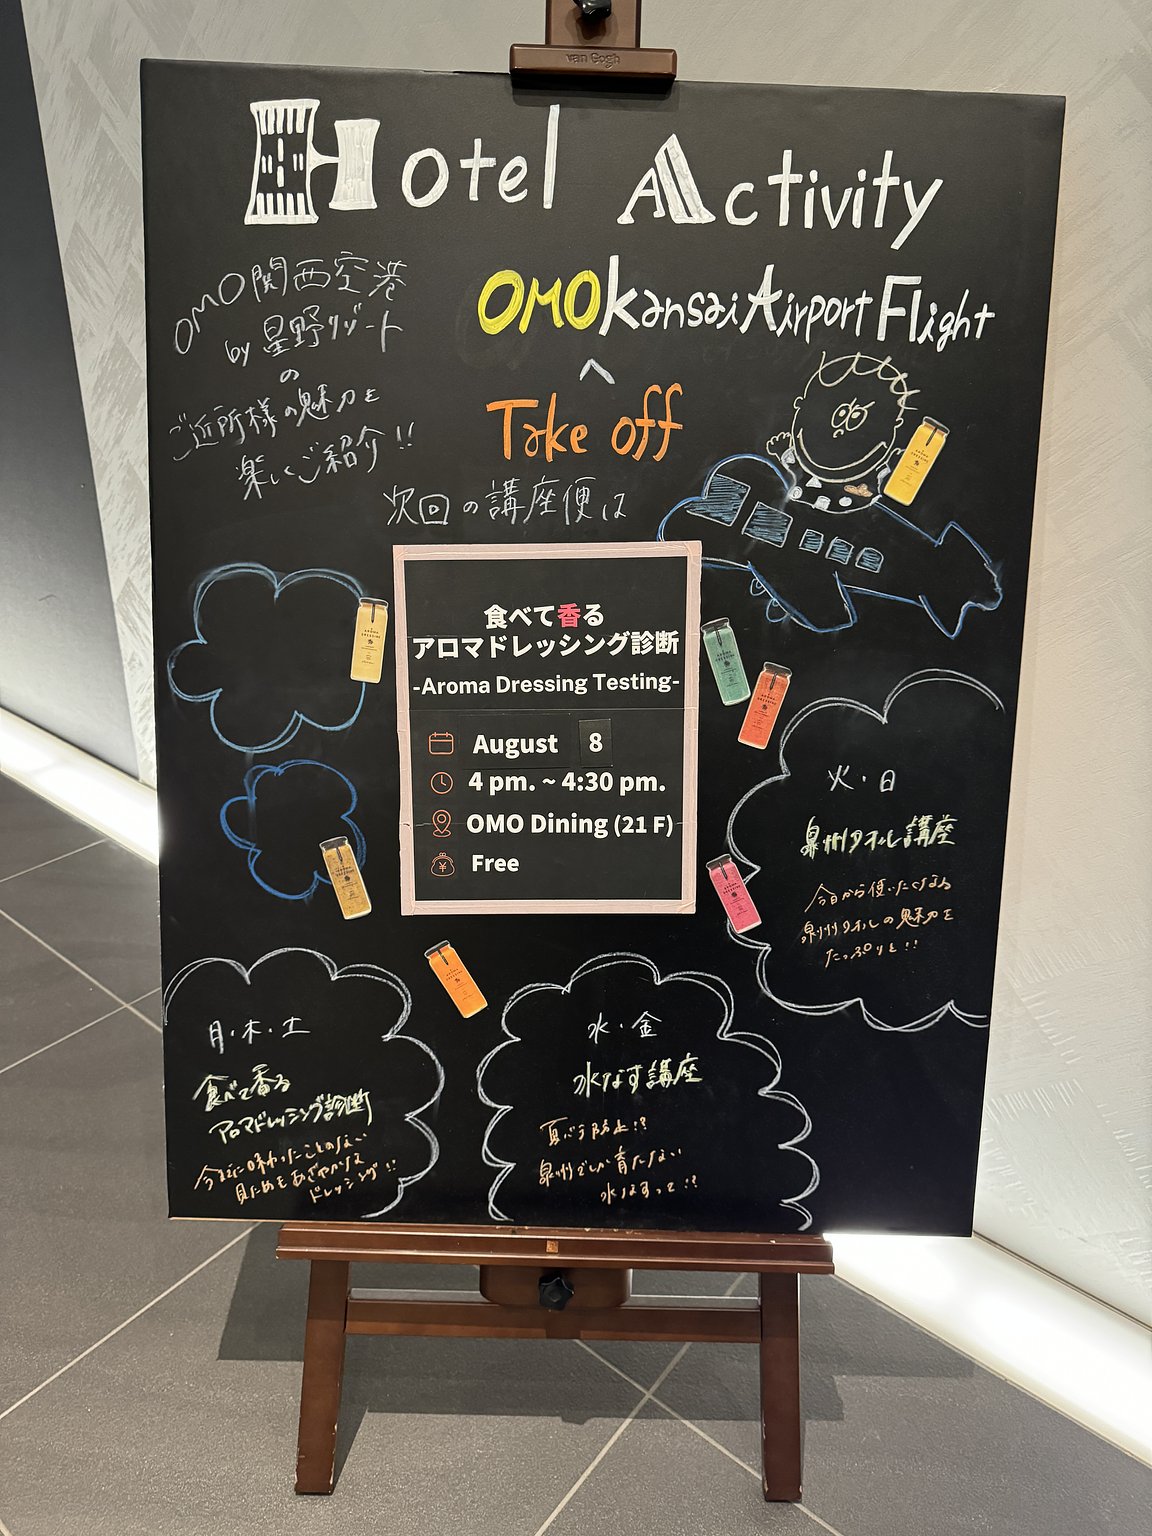 van Gogh
Hotel Activity
OMO関西空港
by 星野リゾート
の
ご近所様の魅力を
楽しくご紹介!!
OMOKansai Airport Flight
Take off
次回の講座便は
食べて香る
アロマドレッシング診断
-Aroma Dressing Testing-
August 8
4 pm. ~ 4:30 pm.
OMO Dining (21 F)
Free
火・日
泉州タオル講座
今日から使いたくなる
泉州タオルの魅力を
たっぷりと!!
月・木・土
食べて香る
アロマドレッシング診断
今までに味わったことのない
見ためもあざやかな
ドレッシング!!
水・金
水なす講座
夏バテ防止!?
泉州でしか育たない
水なすって!?
AROMA
DRESSING